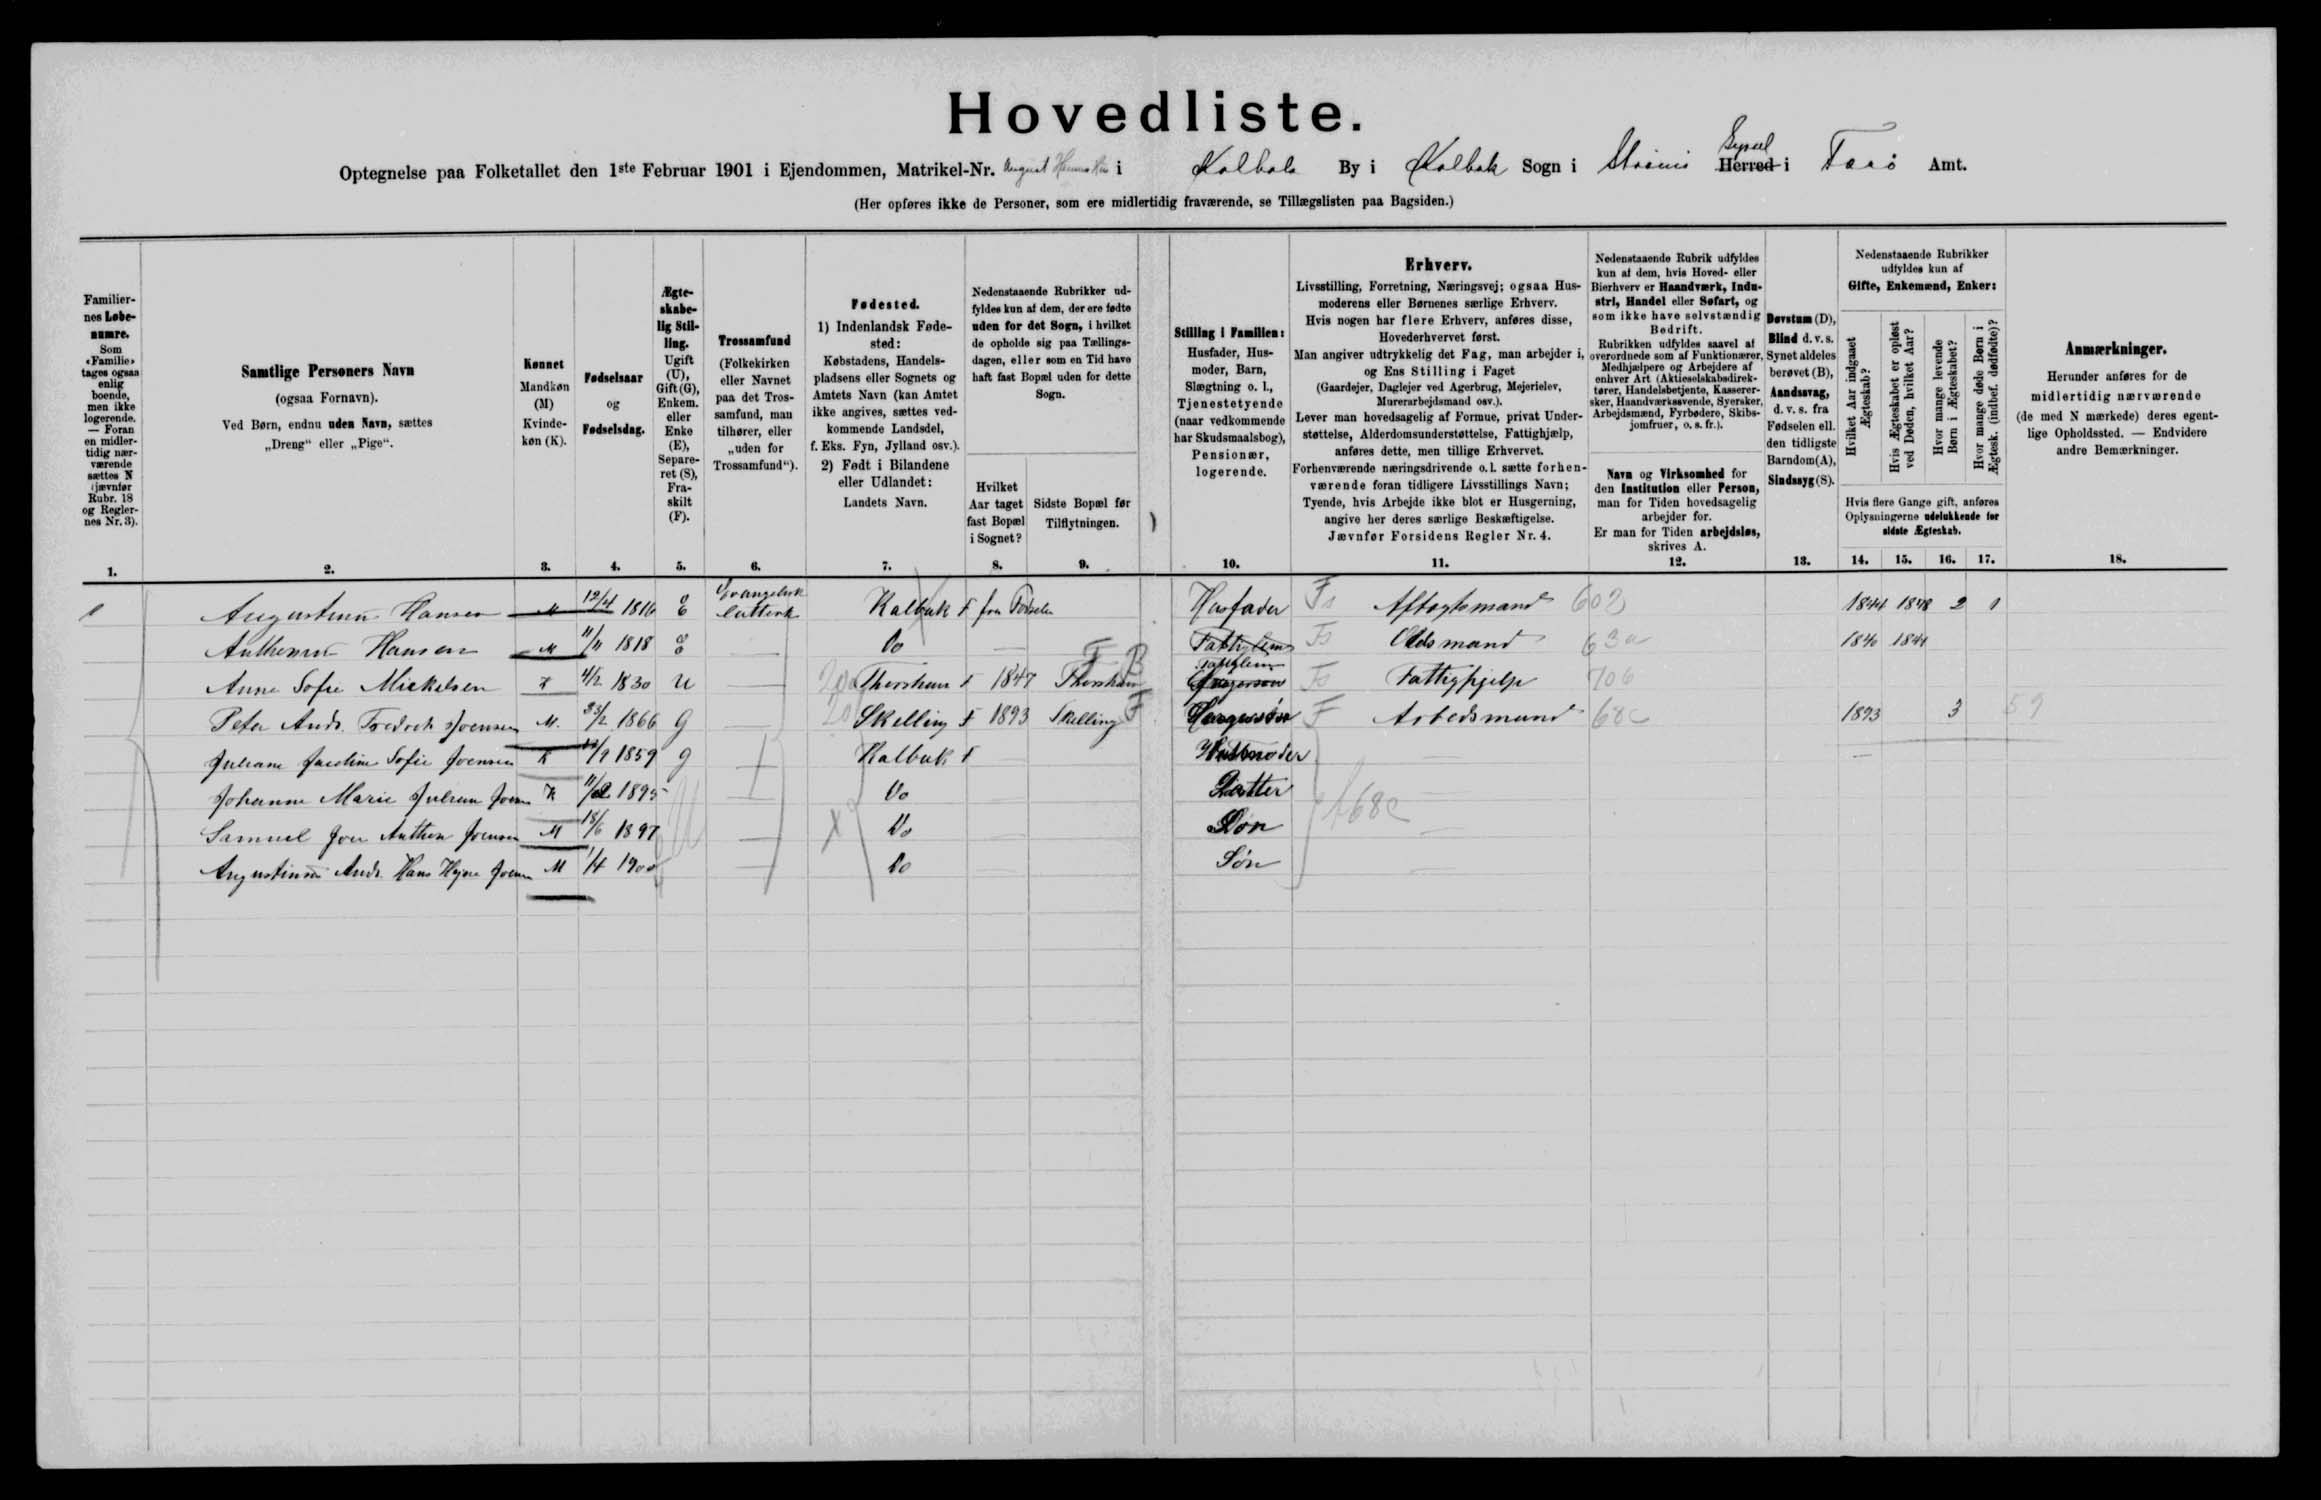 Hovedliste.
Optegnelse paa Folketallet den 1ste Februar 1901 i Ejendommen, Matrikel-Nr. August i Kalbak By i Kalbak Sogn i Strømø Herred Sysel i Færø Amt.
(Her opføres ikke de Personer, som ere midlertidig fraværende, se Tillægslisten paa Bagsiden.)
Familiernes Løbenumre. Som «Familie» tages ogsaa enlig boende, men ikke logerende. — Foran en midlertidig nærværende sættes N (jævnfør Rubr. 18 og Reglernes Nr. 3).
Samtlige Personers Navn
(ogsaa Fornavn).
Ved Børn, endnu uden Navn, sættes
„Dreng“ eller „Pige“.
Kønnet
Mandkøn (M)
Kvindekøn (K).
Fødselsaar
og
Fødselsdag.
Ægteskabelig Stilling.
Ugift (U), Gift (G), Enkem. eller Enke (E), Separeret (S), Fraskilt (F).
Trossamfund
(Folkekirken eller Navnet paa det Trossamfund, man tilhører, eller „uden for Trossamfund“).
Fødested.
1) Indenlandsk Fødested:
Købstadens, Handelspladsens eller Sognets og Amtets Navn (kan Amtet ikke angives, sættes vedkommende Landsdel, f. Eks. Fyn, Jylland osv.).
2) Født i Bilandene eller Udlandet:
Landets Navn.
Nedenstaaende Rubrikker udfyldes kun af dem, der ere fødte uden for det Sogn, i hvilket de opholde sig paa Tællingsdagen, eller som en Tid have haft fast Bopæl uden for dette Sogn.
Hvilket Aar taget fast Bopæl i Sognet?
Sidste Bopæl før Tilflytningen.
Stilling i Familien:
Husfader, Husmoder, Barn, Slægtning o. l., Tjenestetyende (naar vedkommende har Skudsmaalsbog), Pensionær, logerende.
Erhverv.
Livsstilling, Forretning, Næringsvej; ogsaa Husmoderens eller Børnenes særlige Erhverv.
Hvis nogen har flere Erhverv, anføres disse, Hovederhvervet først.
Man angiver udtrykkelig det Fag, man arbejder i, og Ens Stilling i Faget
(Gaardejer, Daglejer ved Agerbrug, Mejerielev, Murerarbejdsmand osv.).
Lever man hovedsagelig af Formue, privat Understøttelse, Alderdomsunderstøttelse, Fattighjælp, anføres dette, men tillige Erhvervet.
Forhenværende næringsdrivende o. l. sætte forhenværende foran tidligere Livsstillings Navn;
Tyende, hvis Arbejde ikke blot er Husgerning, angive her deres særlige Beskæftigelse.
Jævnfør Forsidens Regler Nr. 4.
Nedenstaaende Rubrik udfyldes kun af dem, hvis Hoved- eller Bierhverv er Haandværk, Industri, Handel eller Søfart, og som ikke have selvstændig Bedrift.
Rubrikken udfyldes saavel af overordnede som af Funktionærer, Medhjælpere og Arbejdere af enhver Art (Aktieselskabsdirektører, Handelsbetjente, Kasserersker, Haandværkssvende, Syersker, Arbejdsmænd, Fyrbødere, Skibsjomfruer, o. s. fr.).
Navn og Virksomhed for den Institution eller Person, man for Tiden hovedsagelig arbejder for.
Er man for Tiden arbejdsløs, skrives A.
Døvstum (D),
Blind d. v. s. Synet aldeles berøvet (B),
Aandssvag, d. v. s. fra Fødselen ell. den tidligste Barndom (A),
Sindssyg (S).
Nedenstaaende Rubrikker udfyldes kun af
Gifte, Enkemænd, Enker:
Hvilket Aar indgaaet Ægteskab?
Hvis Ægteskabet er opløst ved Døden, hvilket Aar?
Hvor mange levende Børn i Ægteskabet?
Hvor mange døde Børn i Ægtesk. (indbef. dødfødte)?
Hvis flere Gange gift, anføres Oplysningerne udelukkende for sidste Ægteskab.
Anmærkninger.
Herunder anføres for de midlertidig nærværende (de med N mærkede) deres egentlige Opholdssted. — Endvidere andre Bemærkninger.
1. 2. 3. 4. 5. 6. 7. 8. 9. 10. 11. 12. 13. 14. 15. 16. 17. 18.
1 Augustinus Hansen M 12/4 1816 E Evangelisk Luttersk Kalbak F fra Fødselen Husfader Fs Aftægtsmand 602 1844 1878 2 1
Hansen M 11/11 1818 E — Do — Fs Oldsmand 63a 1840 1841
Anne Sofie Mickelsen K 4/2 1830 U — Thorshavn F 1847 Thorshavn Fattiglem Fs Fattighjelp 706
Peter Andr. Fredrek Joensen M. 23/2 1866 G — Skelling F 1893 Skelling F F Arbedsmand 68c 1893 3 59
Juliane Jacobine Sofie Joensen K /9 1859 G — Kalbak F — Husmoder —
Johanne Marie Juliane Joens K 11/ 1895 — Do — Datter
Samuel Joen Anthon Joensen M 18/6 1897 U — Do — Søn — 68c
Augustinus Andr. Hans Joens M 1/4 1900 — Do — Søn —